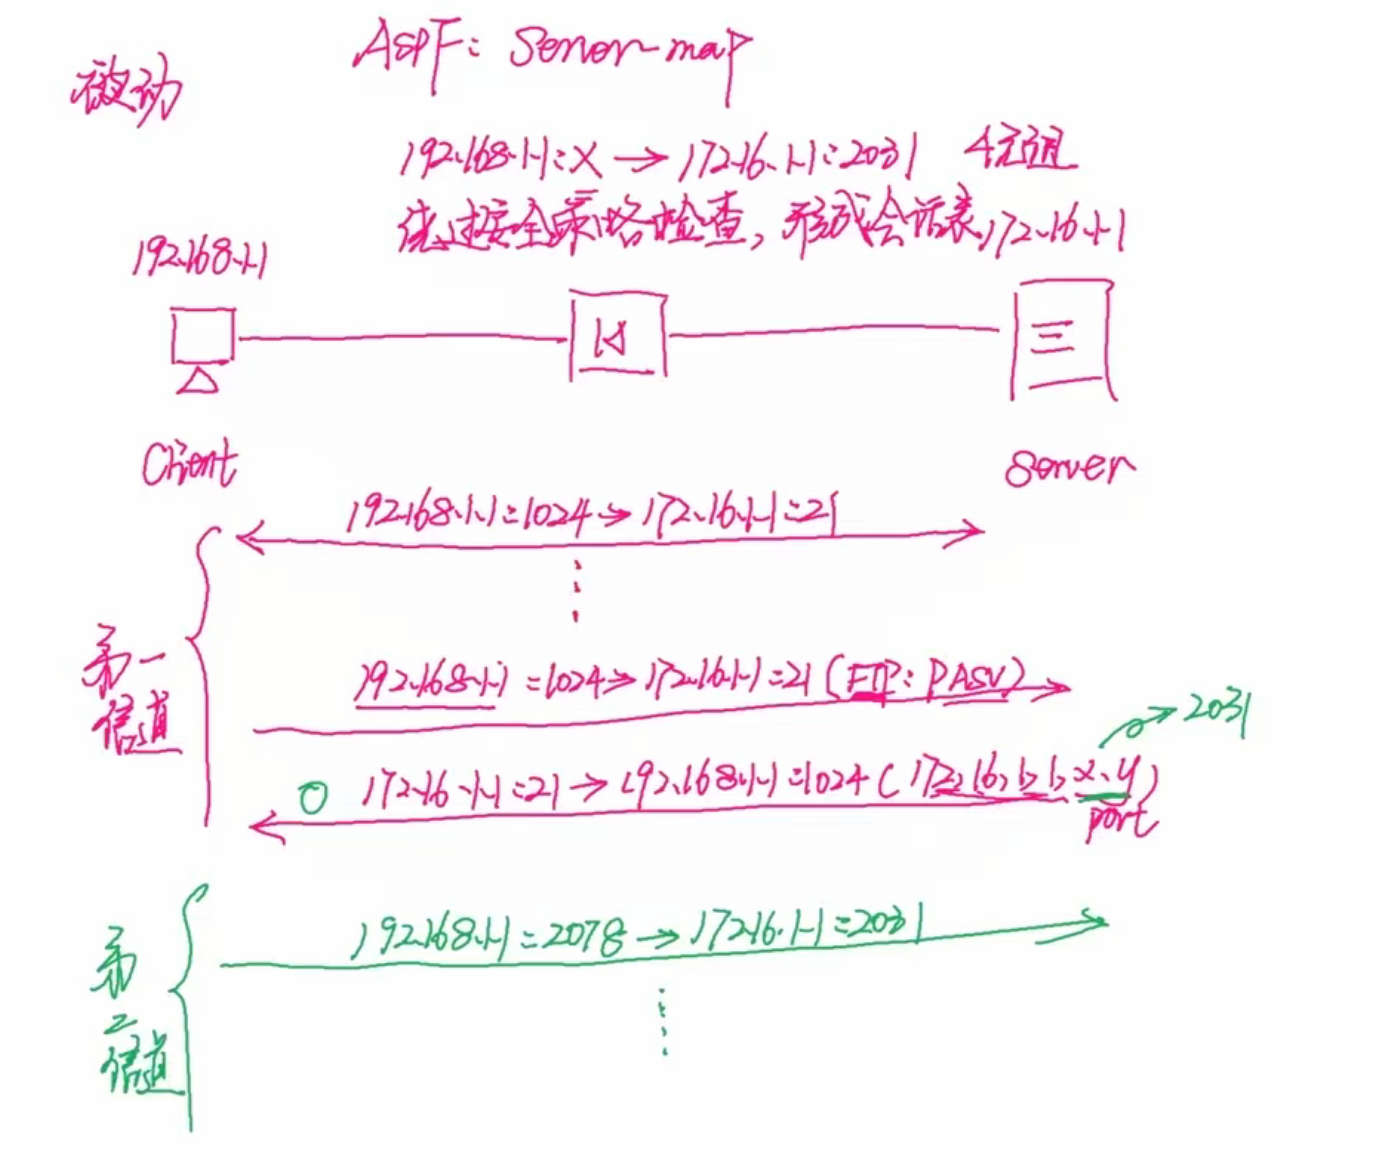 被动
ASPF: Server-map
192.168.1.1:X → 172.16.1.1:2031 4元组
绕过安全策略检查,形成会话表
192.168.1.1
172.16.1.1
Client
Server
192.168.1.1:1024 → 172.16.1.1:21
第一信道
192.168.1.1:1024 → 172.16.1.1:21 (FTP: PASV)
2031
172.16.1.1:21 → 192.168.1.1:1024 (172,16,1,1,x,y)
port
第二信道
192.168.1.1:2078 → 172.16.1.1:2031